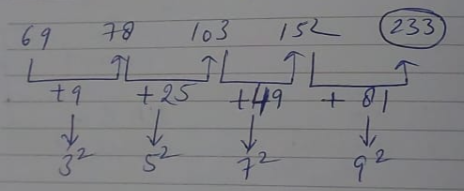 69 78 103 152 233
+9 +25 +49 + 81
3² 5² 7² 9²